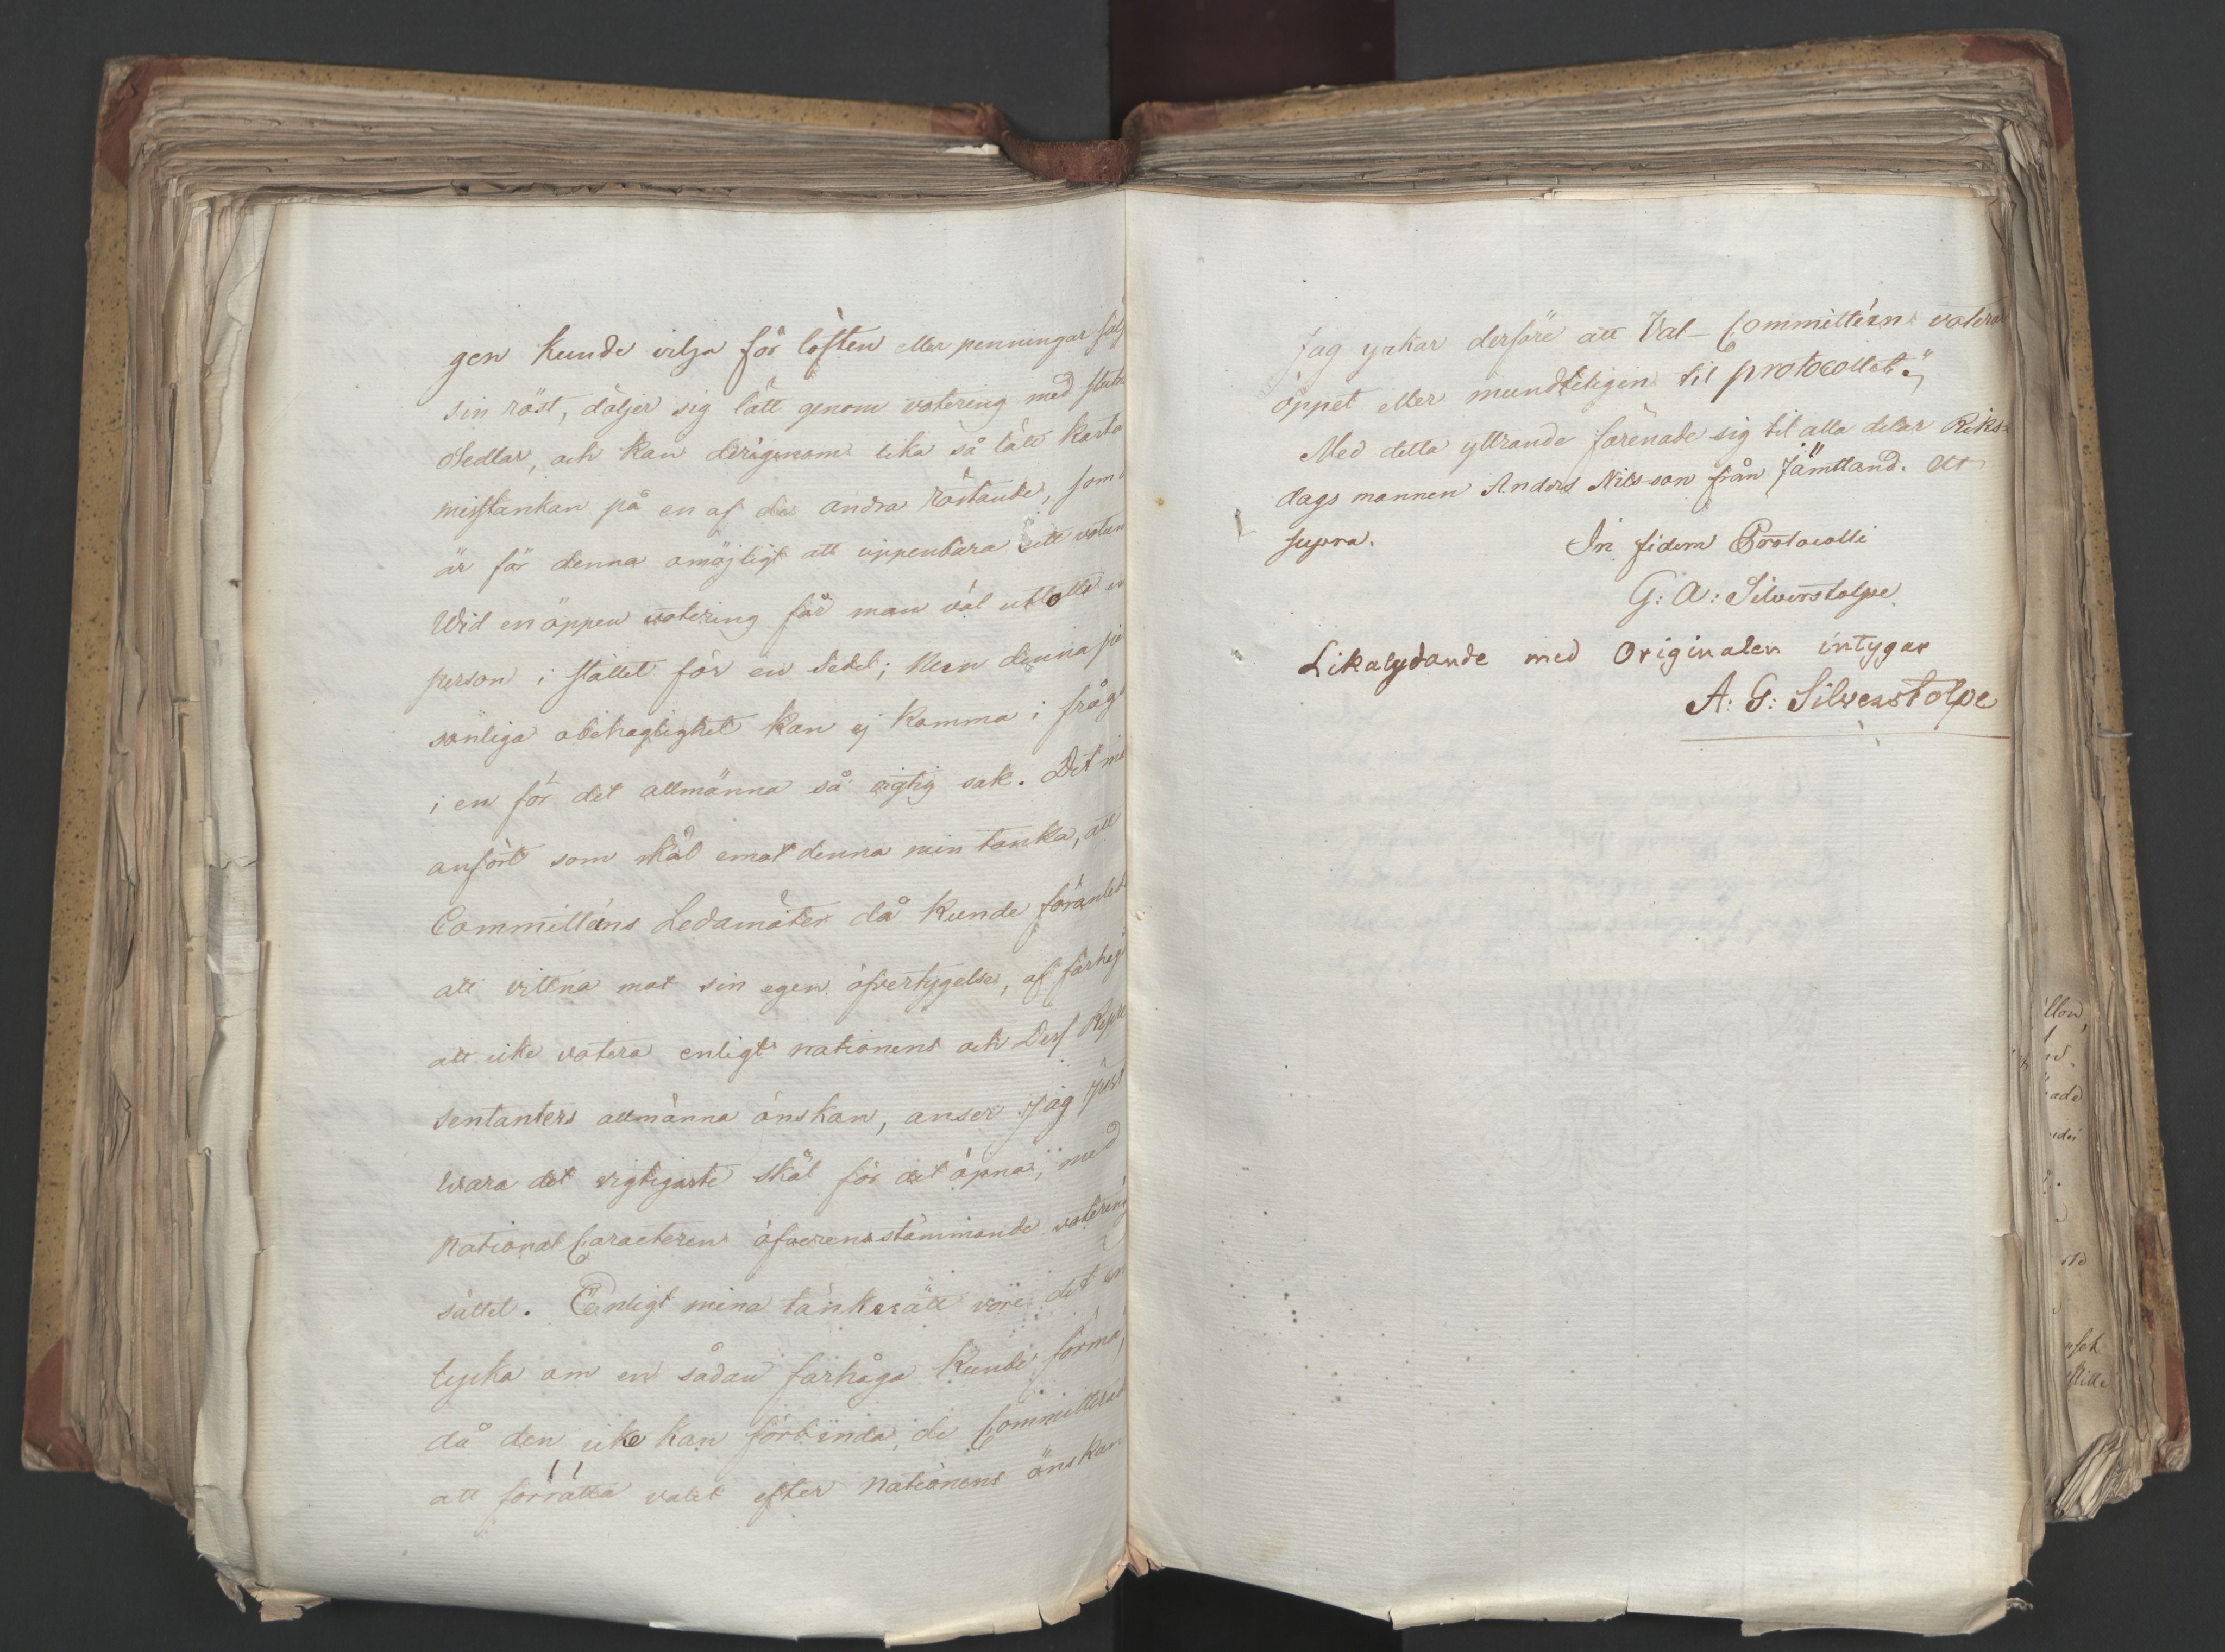 gen kunde vilja för löften eller penningar sälj
sin röst, döljer sig lätt genom votering med slutn
Sedlar, och kan derigenom lika så lätt kasta
misstankan på en af de andra röstande, som d
är för denna omöjligt att uppenbara sitt votum
Wid en öppen votering får man väl utlotta en
person i stället för en Sedel; Men denna per
sonliga obehaglighet kan ej komma i fråga
i en för det allmänna så vigtig sak. Det mä
anfört som skäl emot denna min tanka, att
Committéns Ledamöter då kunde föranled
att vittna mot sin egen öfvertygelse, af farhåg
att icke votera enligt nationens och Dess Repre
sentanters allmänna önskan, anser Jag just
wara det vigtigaste skäl för det öpna, med
National Caracteren öfverensstämmande votering
sättet. Enligt mina tänkesätt vore det en
lycka om en sådan farhåga kunde förmå,
då den icke kan förbinda, de Committerad
att förrätta valet efter nationens önskan
Jag yrkar derföre att Val-Committéen votera
öppet eller mundteligen til protocollet."
Med detta yttrande förenade sig til alla delar Riks-
dags mannen Anders Nilsson från Jämtland. Ut
supra.
In fidem Protocolli
G: A: Silverstolpe
Likalydande med Originalen intygar
A: G: Silverstolpe